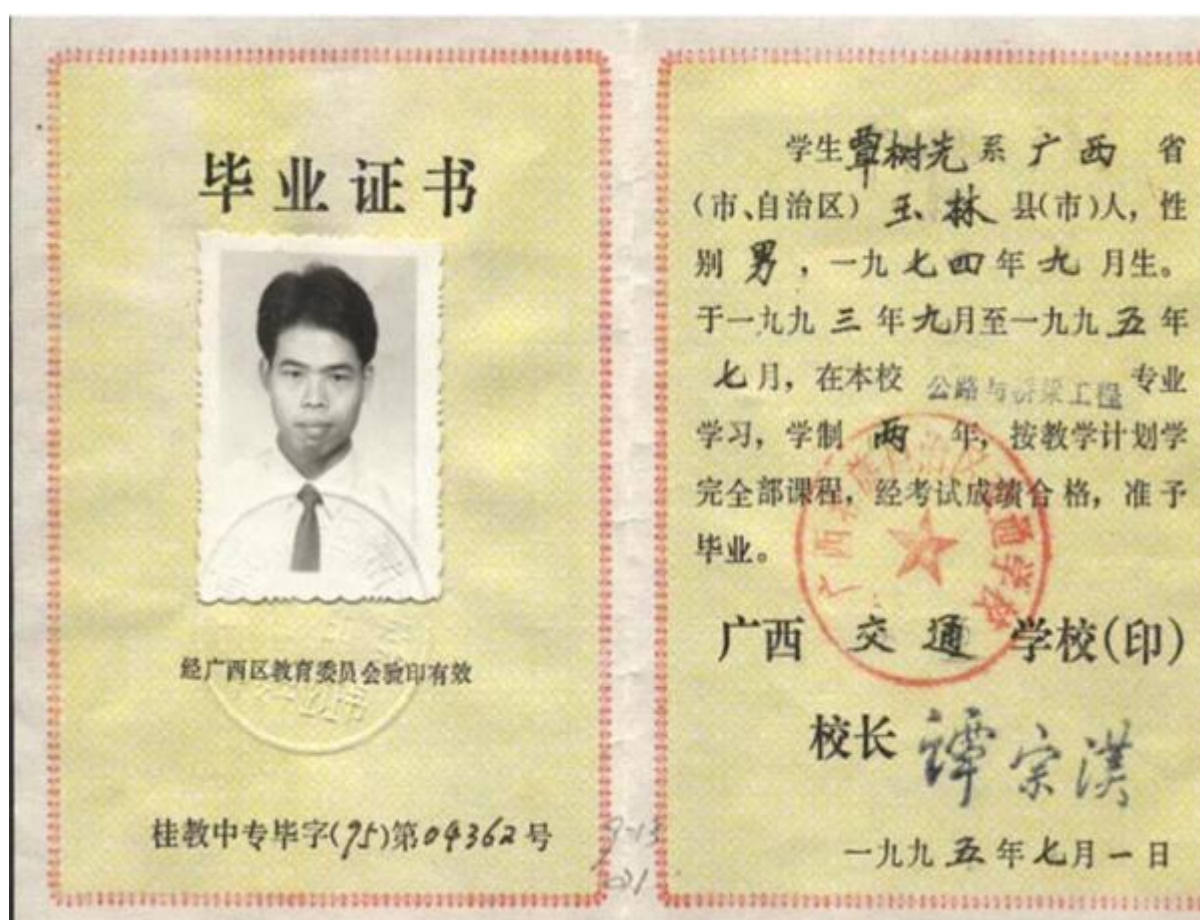 毕业证书
经广西区教育委员会验印有效
桂教中专毕字(95)第04362号
学生覃树光系广西省
(市、自治区)玉林县(市)人,性
别男,一九七四年九月生。
于一九九三年九月至一九九五年
七月,在本校公路与桥梁工程专业
学习,学制两年,按教学计划学
完全部课程,经考试成绩合格,准予
毕业。
广西交通学校(印)
校长 谭宗漢
一九九五年七月一日